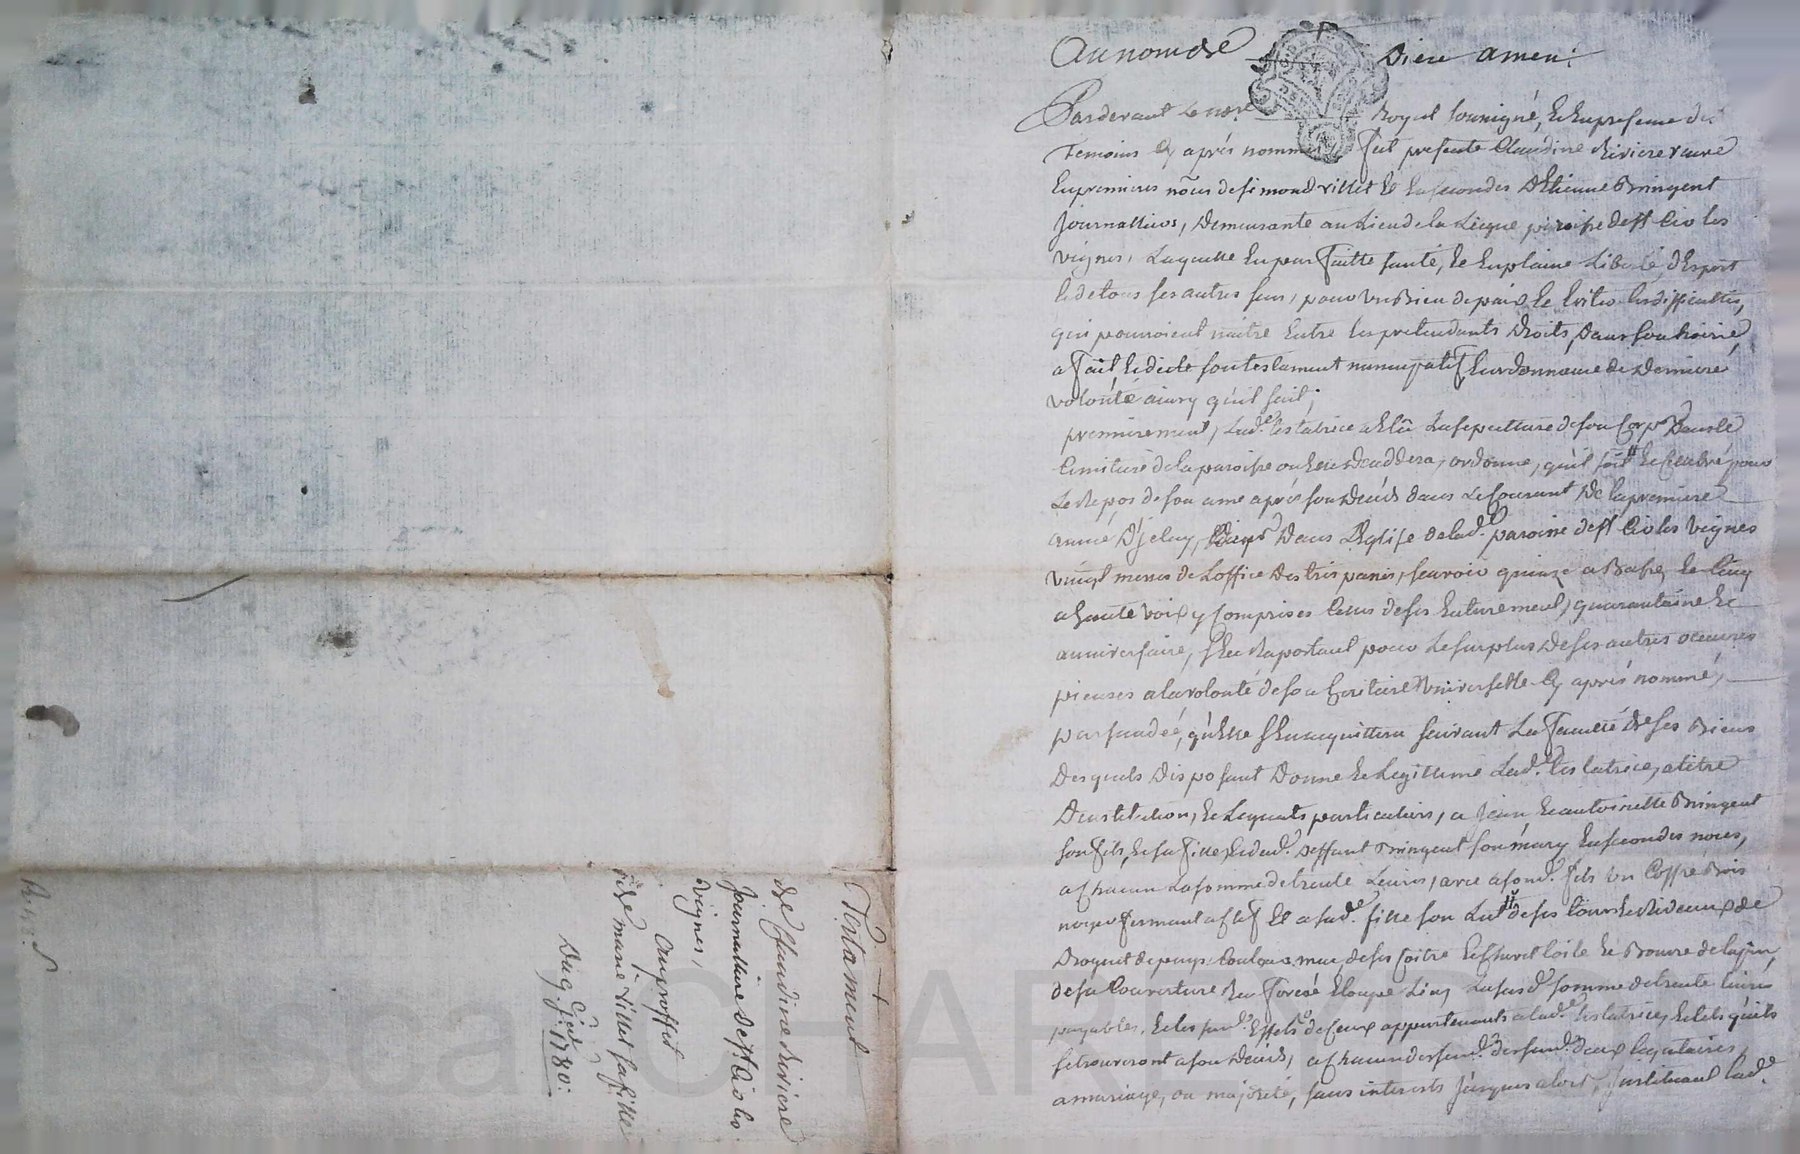 Au nom de Dieu amen.
Pardevant le nore Royal soussigné, et en presence des
temoins cy après nommés, fut presente Claudine Riviere veuve
en premieres nôces de simond villet et en secondes d'Etienne Bringent
journallier, demeurante au lieu de la paroisse de st Cir les
vignes, laquelle en parfaitte santé, et en plaine liberté d'Esprit
et de tous ses autres sens, pour un Bien de paix et Eviter les difficultés,
qui pourroient naitre Entre les pretendants droits, dans son hoirie,
a fait et dicté son testament nuncupatif et ordonnance de derniere
volonté ainsy qu'il suit;
premierement, lad.e testatrice a Elû la sepulture de son Corps dans le
cimitiere de la paroisse ou Elle deceddera, ordonne, qu'il soit celebré pour
le Repos de son ame après son decés dans le Courant de la premiere
année d'jceluy, dans l'Eglise de lad.e paroisse de st Cir les vignes
vingt messes de l'office des trépassés, sçavoir quinze a Basse, et Cinq
a haute voix y Comprises Celles de ses Enterrement, quarantaine et
anniversaire, s'En Raportant pour le surplus de ses autres oeuvres
pieuses a la volonté de son heritiere universelle cy après nommé,
persuadeé, qu'Elle s'En acquittera suivant la faculté de ses Biens
desquels disposant donne et legittime lad.e testatrice, a titre
d'institution, et legats particuliers, a jean et antoinette Bringent
son fils, et sa fille, et dud. deffunt Bringent son mary En secondes noces,
a chacun la somme de trente livres, avec a sond. fils un Coffre Bois
noyer fermant a clef et a sad.e fille son lit de ses tour et Rideaux de
de sa Couverture lasusd.e somme de trente livres
payables, et les susd. Effets de Ceux appartenants a lad.e testatrice, et tels qu'ils
se trouveront a son decés, a chacun desd. deux legataires,
a mariage, ou majorité, sans interets jusques alors, instituant lad.e
Testament
de Claudine Riviere
Journalliere de st Cir les
vignes,
Au proffit
de marie villet sa fille
Du 9 1780.